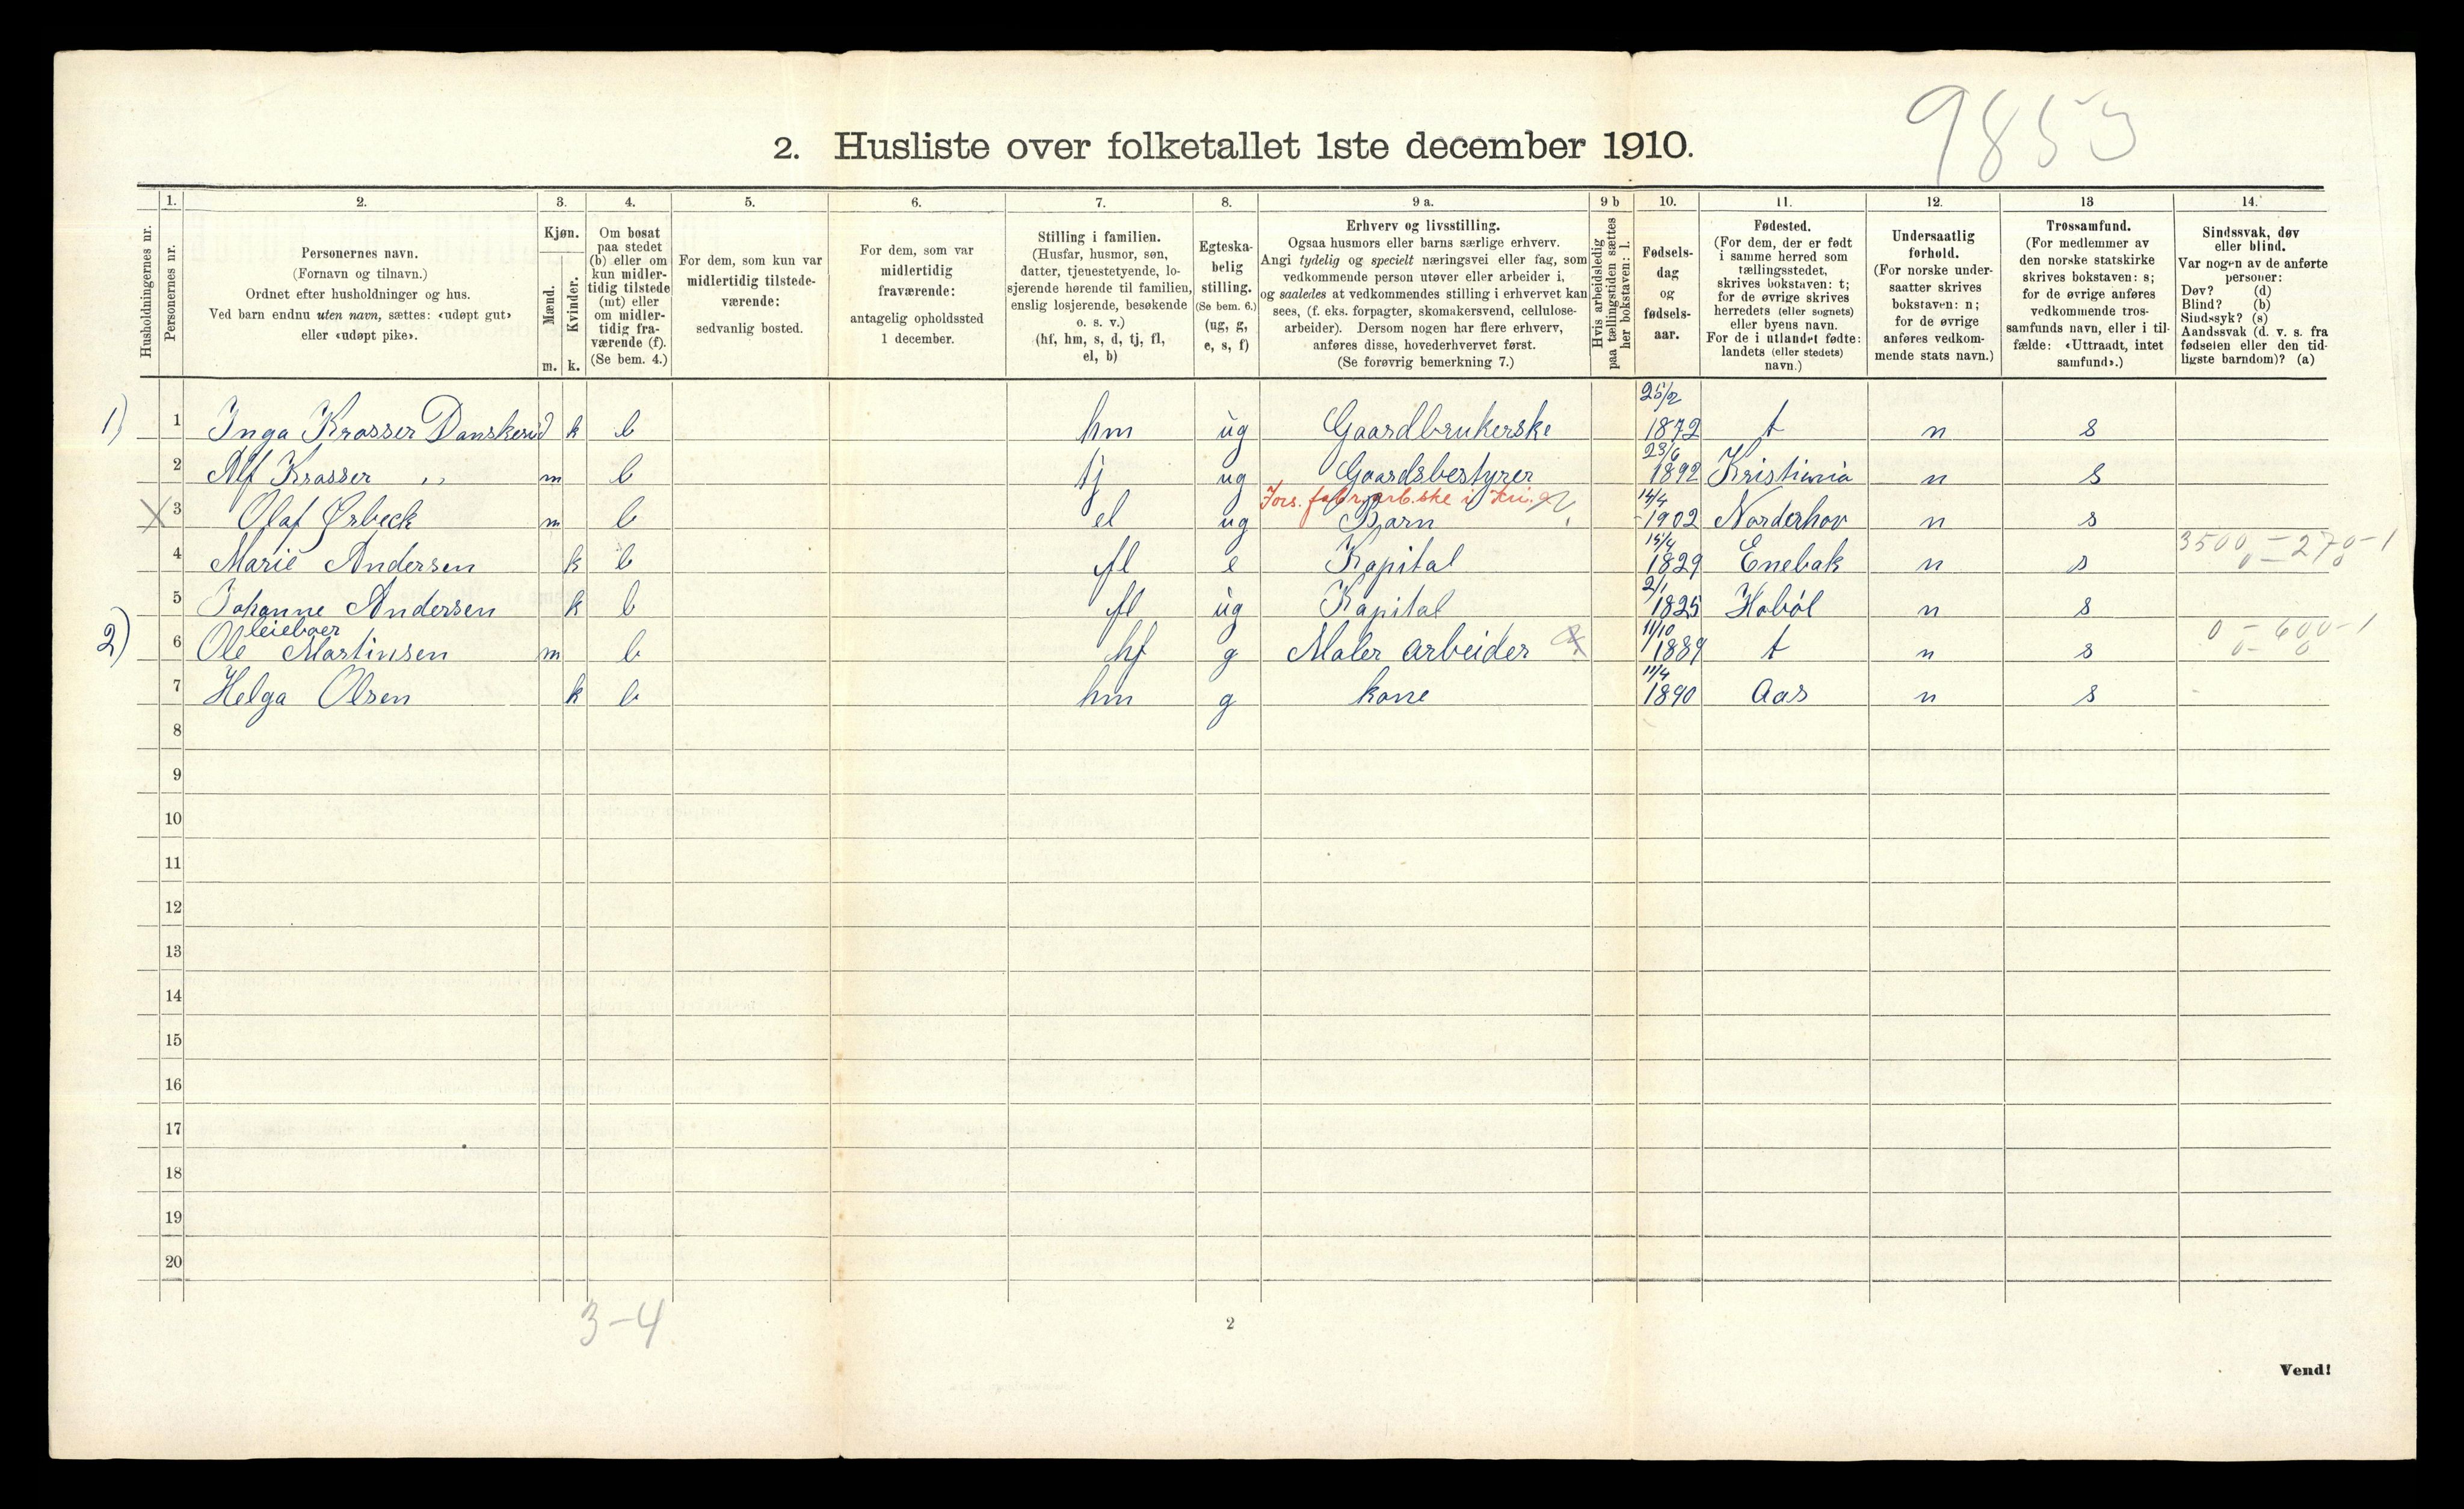 9853
2. Husliste over folketallet 1ste december 1910.
Husholdningernes nr.
1.
Personernes nr.
2.
Personernes navn.
(Fornavn og tilnavn.)
Ordnet efter husholdninger og hus.
Ved barn endnu uten navn, sættes: «udøpt gut»
eller «udøpt pike».
3.
Kjøn.
Mænd.
Kvinder.
m. k.
4.
Om bosat
paa stedet
(b) eller om
kun midler-
tidig tilstede
(mt) eller
om midler-
tidig fra-
værende (f).
(Se bem. 4.)
5.
For dem, som kun var
midlertidig tilstede-
værende:
sedvanlig bosted.
6.
For dem, som var
midlertidig
fraværende:
antagelig opholdssted
1 december.
7.
Stilling i familien.
(Husfar, husmor, søn,
datter, tjenestetyende, lo-
sjerende hørende til familien,
enslig losjerende, besøkende
o. s. v.)
(hf, hm, s, d, tj, fl,
el, b)
8.
Egteska-
belig
stilling.
(Se bem. 6.)
(ug, g,
e, s, f)
9 a.
Erhverv og livsstilling.
Ogsaa husmors eller barns særlige erhverv.
Angi tydelig og specielt næringsvei eller fag, som
vedkommende person utøver eller arbeider i,
og saaledes at vedkommendes stilling i erhvervet kan
sees, (f. eks. forpagter, skomakersvend, cellulose-
arbeider). Dersom nogen har flere erhverv,
anføres disse, hovederhvervet først.
(Se forøvrig bemerkning 7.)
9 b
Hvis arbeidsledig
paa tællingstiden sættes
her bokstaven: l.
10.
Fødsels-
dag
og
fødsels-
aar.
11.
Fødested.
(For dem, der er født
i samme herred som
tællingsstedet,
skrives bokstaven: t;
for de øvrige skrives
herredets (eller sognets)
eller byens navn.
For de i utlandet fødte:
landets (eller stedets)
navn.)
12.
Undersaatlig
forhold.
(For norske under-
saatter skrives
bokstaven: n;
for de øvrige
anføres vedkom-
mende stats navn.)
13
Trossamfund.
(For medlemmer av
den norske statskirke
skrives bokstaven: s;
for de øvrige anføres
vedkommende tros-
samfunds navn, eller i til-
fælde: «Uttraadt, intet
samfund».)
14.
Sindssvak, døv
eller blind.
Var nogen av de anførte
personer:
Døv? (d)
Blind? (b)
Sindssyk? (s)
Aandssvak (d. v. s. fra
fødselen eller den tid-
ligste barndom)? (a)
1) 1 Inga Krosser Danskerud k b hm ug Gaardbrukerske 25/2 1872 t n s
2 Alf Krosser ,, m b tj ug Gaardsbestyrer 23/6 1892 Kristiania n s
Fors. fabr.arb.ske i Kri.
X 3 Olaf Ørbeck m b el ug Barn 14/4 1902 Norderhov n s
4 Marie Andersen k b fl e Kapital 15/4 1829 Enebak n s 3500 – 270–1
5 Johanne Andersen k b fl ug Kapital 2/1 1825 Hobøl n s
leieboer
2) 6 Ole Martinsen m b hf g Maler arbeider 11/10 1889 t n s 0 – 600–1
7 Helga Olsen k b hm g kone 11/4 1890 Aas n s
8
9
10
11
12
13
14
15
16
17
18
19
20
3–4
2
Vend!